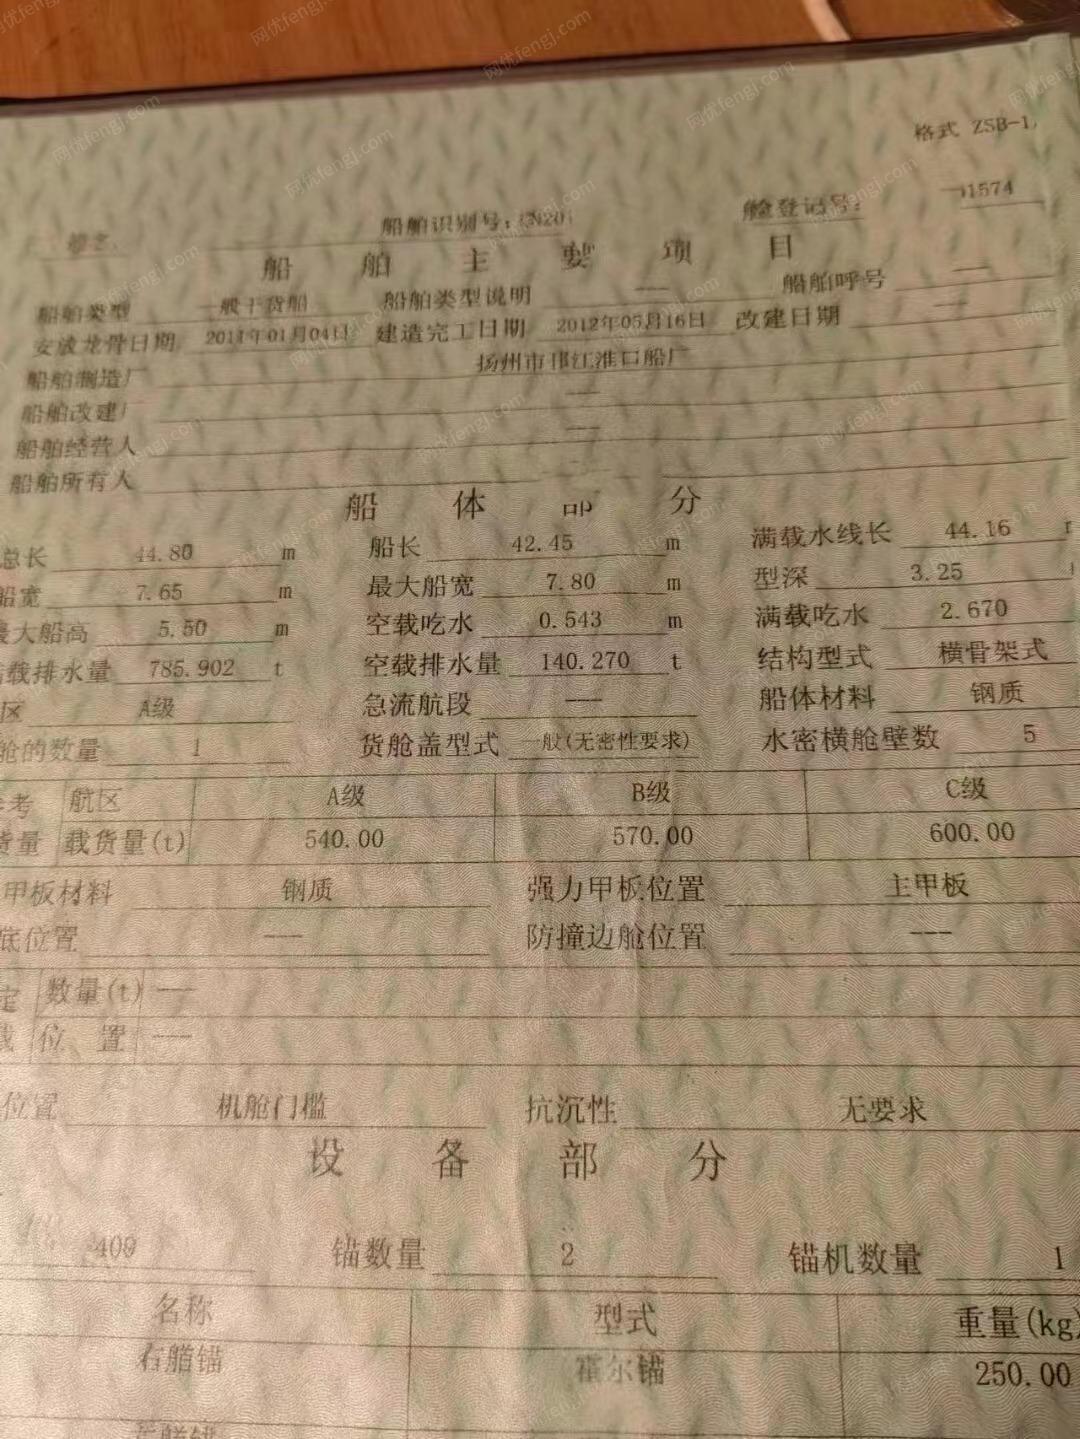 格式 ZSB-1
船舶识别号: CN20 船检登记号: 1574
船舶主要项目
船舶类型 一般干货船 船舶类型说明 --- 船舶呼号 ---
安放龙骨日期 2011年01月04日 建造完工日期 2012年05月16日 改建日期 ---
船舶制造厂 扬州市邗江淮口船厂
船舶改建厂 ---
船舶经营人 ---
船舶所有人
船体部分
总长 44.80 m 船长 42.45 m 满载水线长 44.16
船宽 7.65 m 最大船宽 7.80 m 型深 3.25
最大船高 5.50 m 空载吃水 0.543 m 满载吃水 2.670
载排水量 785.902 t 空载排水量 140.270 t 结构型式 横骨架式
区 A级 急流航段 --- 船体材料 钢质
舱的数量 1 货舱盖型式 一般(无密性要求) 水密横舱壁数 5
考 航区 A级 B级 C级
货量 载货量(t) 540.00 570.00 600.00
甲板材料 钢质 强力甲板位置 主甲板
底位置 --- 防撞边舱位置 ---
定 数量(t) ---
载 位置 ---
位置 机舱门槛 抗沉性 无要求
设备部分
409 锚数量 2 锚机数量 1
名称 型式 重量(kg)
右艏锚 霍尔锚 250.00
网优fengj.com